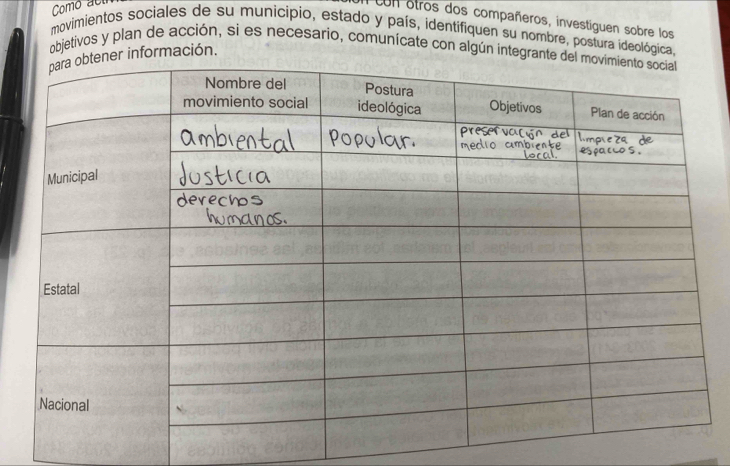 Como
con otros dos compañeros, investiguen sobre los
movimientos sociales de su municipio, estado y país, identifiquen su nombre, postura ideológica,
objetivos y plan de acción, si es necesario, comunícate con algún integrante del movimiento social
para obtener información.
Nombre del
movimiento social
Postura
ideológica
Objetivos
Plan de acción
Municipal
ambiental
popular.
preservación del
medio ambiente
local.
limpieza de
espacios.
Justicia
derechos
humanos.
Estatal
Nacional